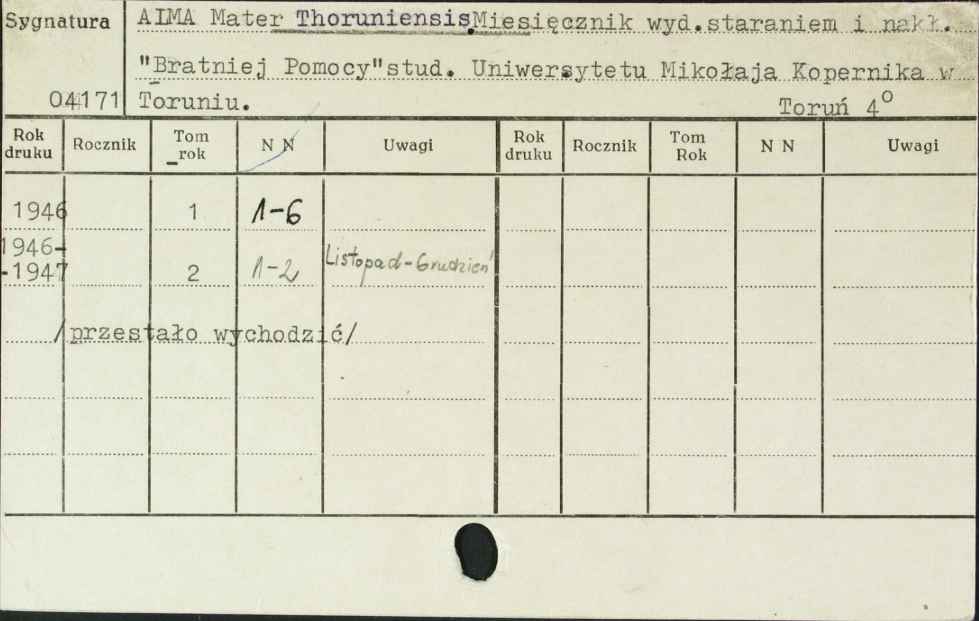 Sygnatura
AIMA Mater Thoruniensis.Miesięcznik wyd.staraniem i nakł.
"Bratniej Pomocy"stud. Uniwersytetu Mikołaja Kopernika w
04171 Toruniu. Toruń 4°
Rok druku Rocznik Tom rok N N Uwagi Rok druku Rocznik Tom Rok N N Uwagi
1946 1 1-6
1946-
-1947 2 1-2 Listopad-Grudzień
/przestało wychodzić/